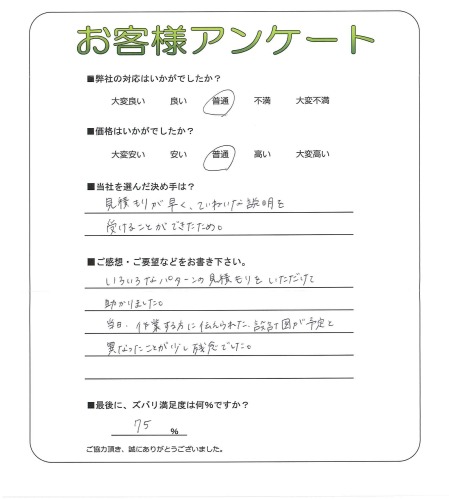 お客様アンケート
■弊社の対応はいかがでしたか？
大変良い 良い 普通 不満 大変不満
■価格はいかがでしたか？
大変安い 安い 普通 高い 大変高い
■当社を選んだ決め手は？
見積もりが早く、ていねいな説明を
受けることができたため。
■ご感想・ご要望などをお書き下さい。
いろいろなパターンの見積もりをいただけて
助かりました。
当日、作業する方に伝えられた、設計図が予定と
異なったことが少し残念でした。
■最後に、ズバリ満足度は何%ですか？
75 %
ご協力頂き、誠にありがとうございました。